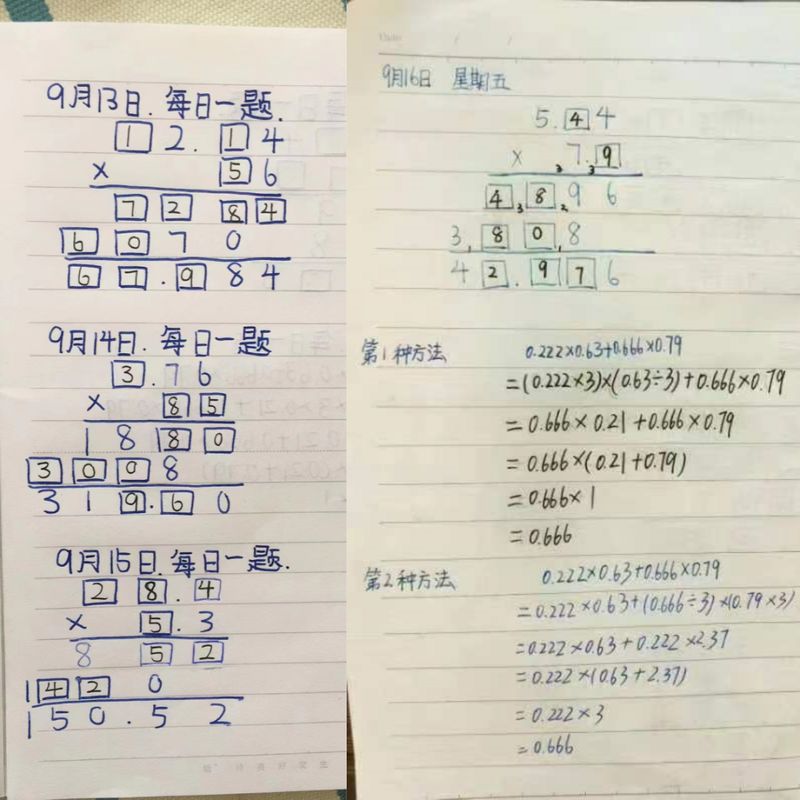 9月13日.每日一题.
1 2.1 4
× 5 6
7 2 8 4
6 0 7 0
6 7.9 8 4
9月14日.每日一题
3.7 6
× 8 5
1 8 8 0
3 0 0 8
3 1 9.6 0
9月15日.每日一题.
2 8.4
× 5.3
8 5 2
1 4 2 0
1 5 0.5 2
9月16日 星期五
5.4 4
× 7.9
4 8 9 6
3 8 0 8
4 2.9 7 6
第1种方法 0.222×0.63+0.666×0.79
=(0.222×3)×(0.63÷3)+0.666×0.79
=0.666×0.21+0.666×0.79
=0.666×(0.21+0.79)
=0.666×1
=0.666
第2种方法 0.222×0.63+0.666×0.79
=0.222×0.63+(0.666÷3)×(0.79×3)
=0.222×0.63+0.222×2.37
=0.222×(0.63+2.37)
=0.222×3
=0.666